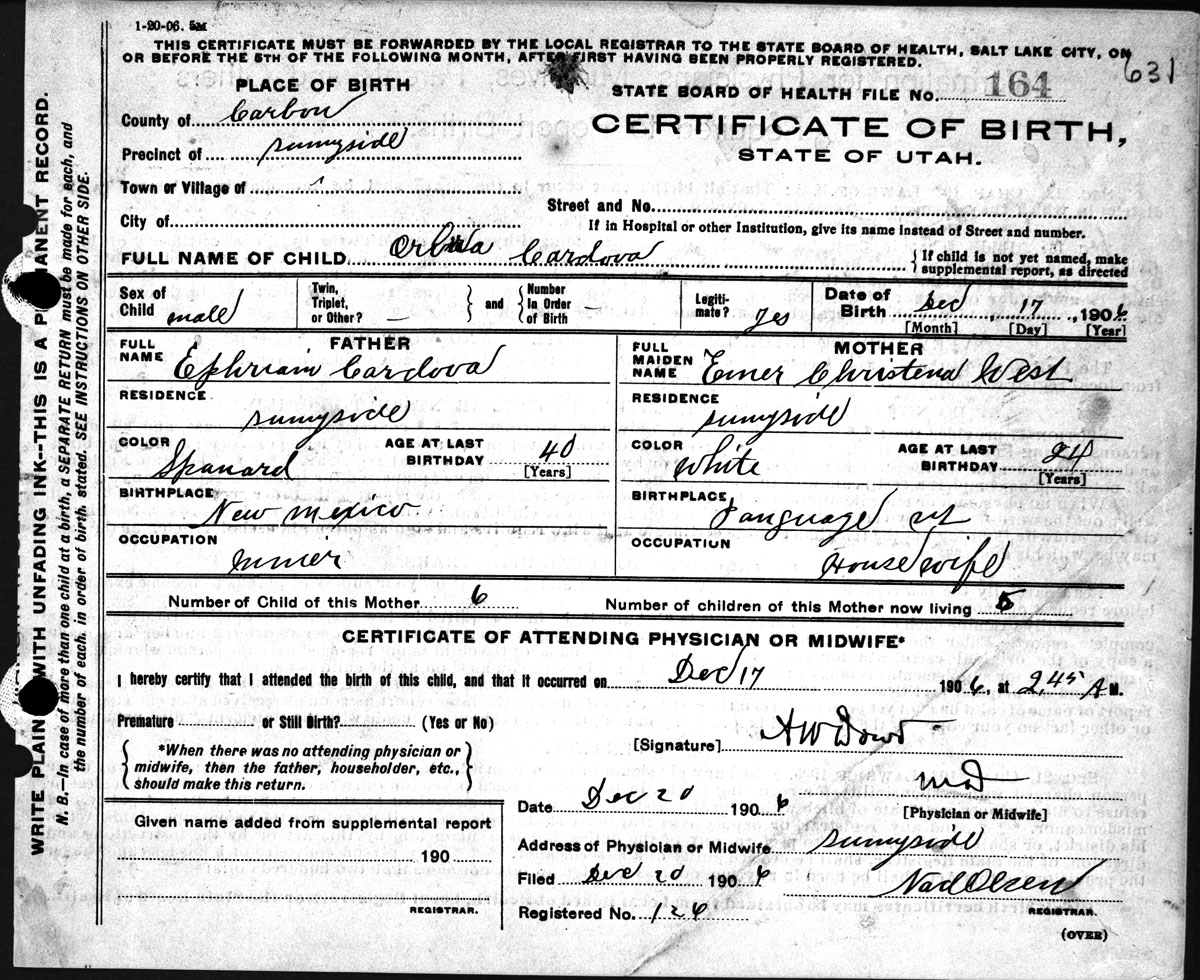 1-20-06. 5M
THIS CERTIFICATE MUST BE FORWARDED BY THE LOCAL REGISTRAR TO THE STATE BOARD OF HEALTH, SALT LAKE CITY, ON
OR BEFORE THE 5TH OF THE FOLLOWING MONTH, AFTER FIRST HAVING BEEN PROPERLY REGISTERED.
631
PLACE OF BIRTH
STATE BOARD OF HEALTH FILE No. 164
County of Carbon
CERTIFICATE OF BIRTH,
Precinct of Sunnyside
STATE OF UTAH.
Town or Village of
Street and No.
City of
If in Hospital or other Institution, give its name instead of Street and number.
FULL NAME OF CHILD Cardova
If child is not yet named, make
supplemental report, as directed
Sex of Child male
Twin, Triplet, or Other? —
and
Number In Order of Birth —
Legiti-mate? yes
Date of Birth Dec 17, 1906
[Month] [Day] [Year]
FATHER
FULL NAME Ephriam Cardova
RESIDENCE
Sunnyside
COLOR Spanard
AGE AT LAST BIRTHDAY 40
[Years]
BIRTHPLACE
New Mexico
OCCUPATION
miner
MOTHER
FULL MAIDEN NAME Emer Christena West
RESIDENCE
Sunnyside
COLOR White
AGE AT LAST BIRTHDAY 24
[Years]
BIRTHPLACE
OCCUPATION
Housewife
Number of Child of this Mother 6
Number of children of this Mother now living 5
CERTIFICATE OF ATTENDING PHYSICIAN OR MIDWIFE*
I hereby certify that I attended the birth of this child, and that it occurred on Dec 17 1906, at 2,45 A M.
Premature or Still Birth? (Yes or No)
[Signature] A W Dowd
*When there was no attending physician or
midwife, then the father, householder, etc.,
should make this return.
MD
[Physician or Midwife]
Date Dec 20 1906
Given name added from supplemental report
190
REGISTRAR.
Address of Physician or Midwife Sunnyside
Filed Dec 20 1906
Registered No. 126
Nad Olsen
REGISTRAR.
(OVER)
WRITE PLAIN WITH UNFADING INK--THIS IS A P MANENT RECORD.
N. B.—In case of more than one child at a birth, a SEPARATE RETURN must be made for each, and
the number of each, in order of birth, stated. SEE INSTRUCTIONS ON OTHER SIDE.